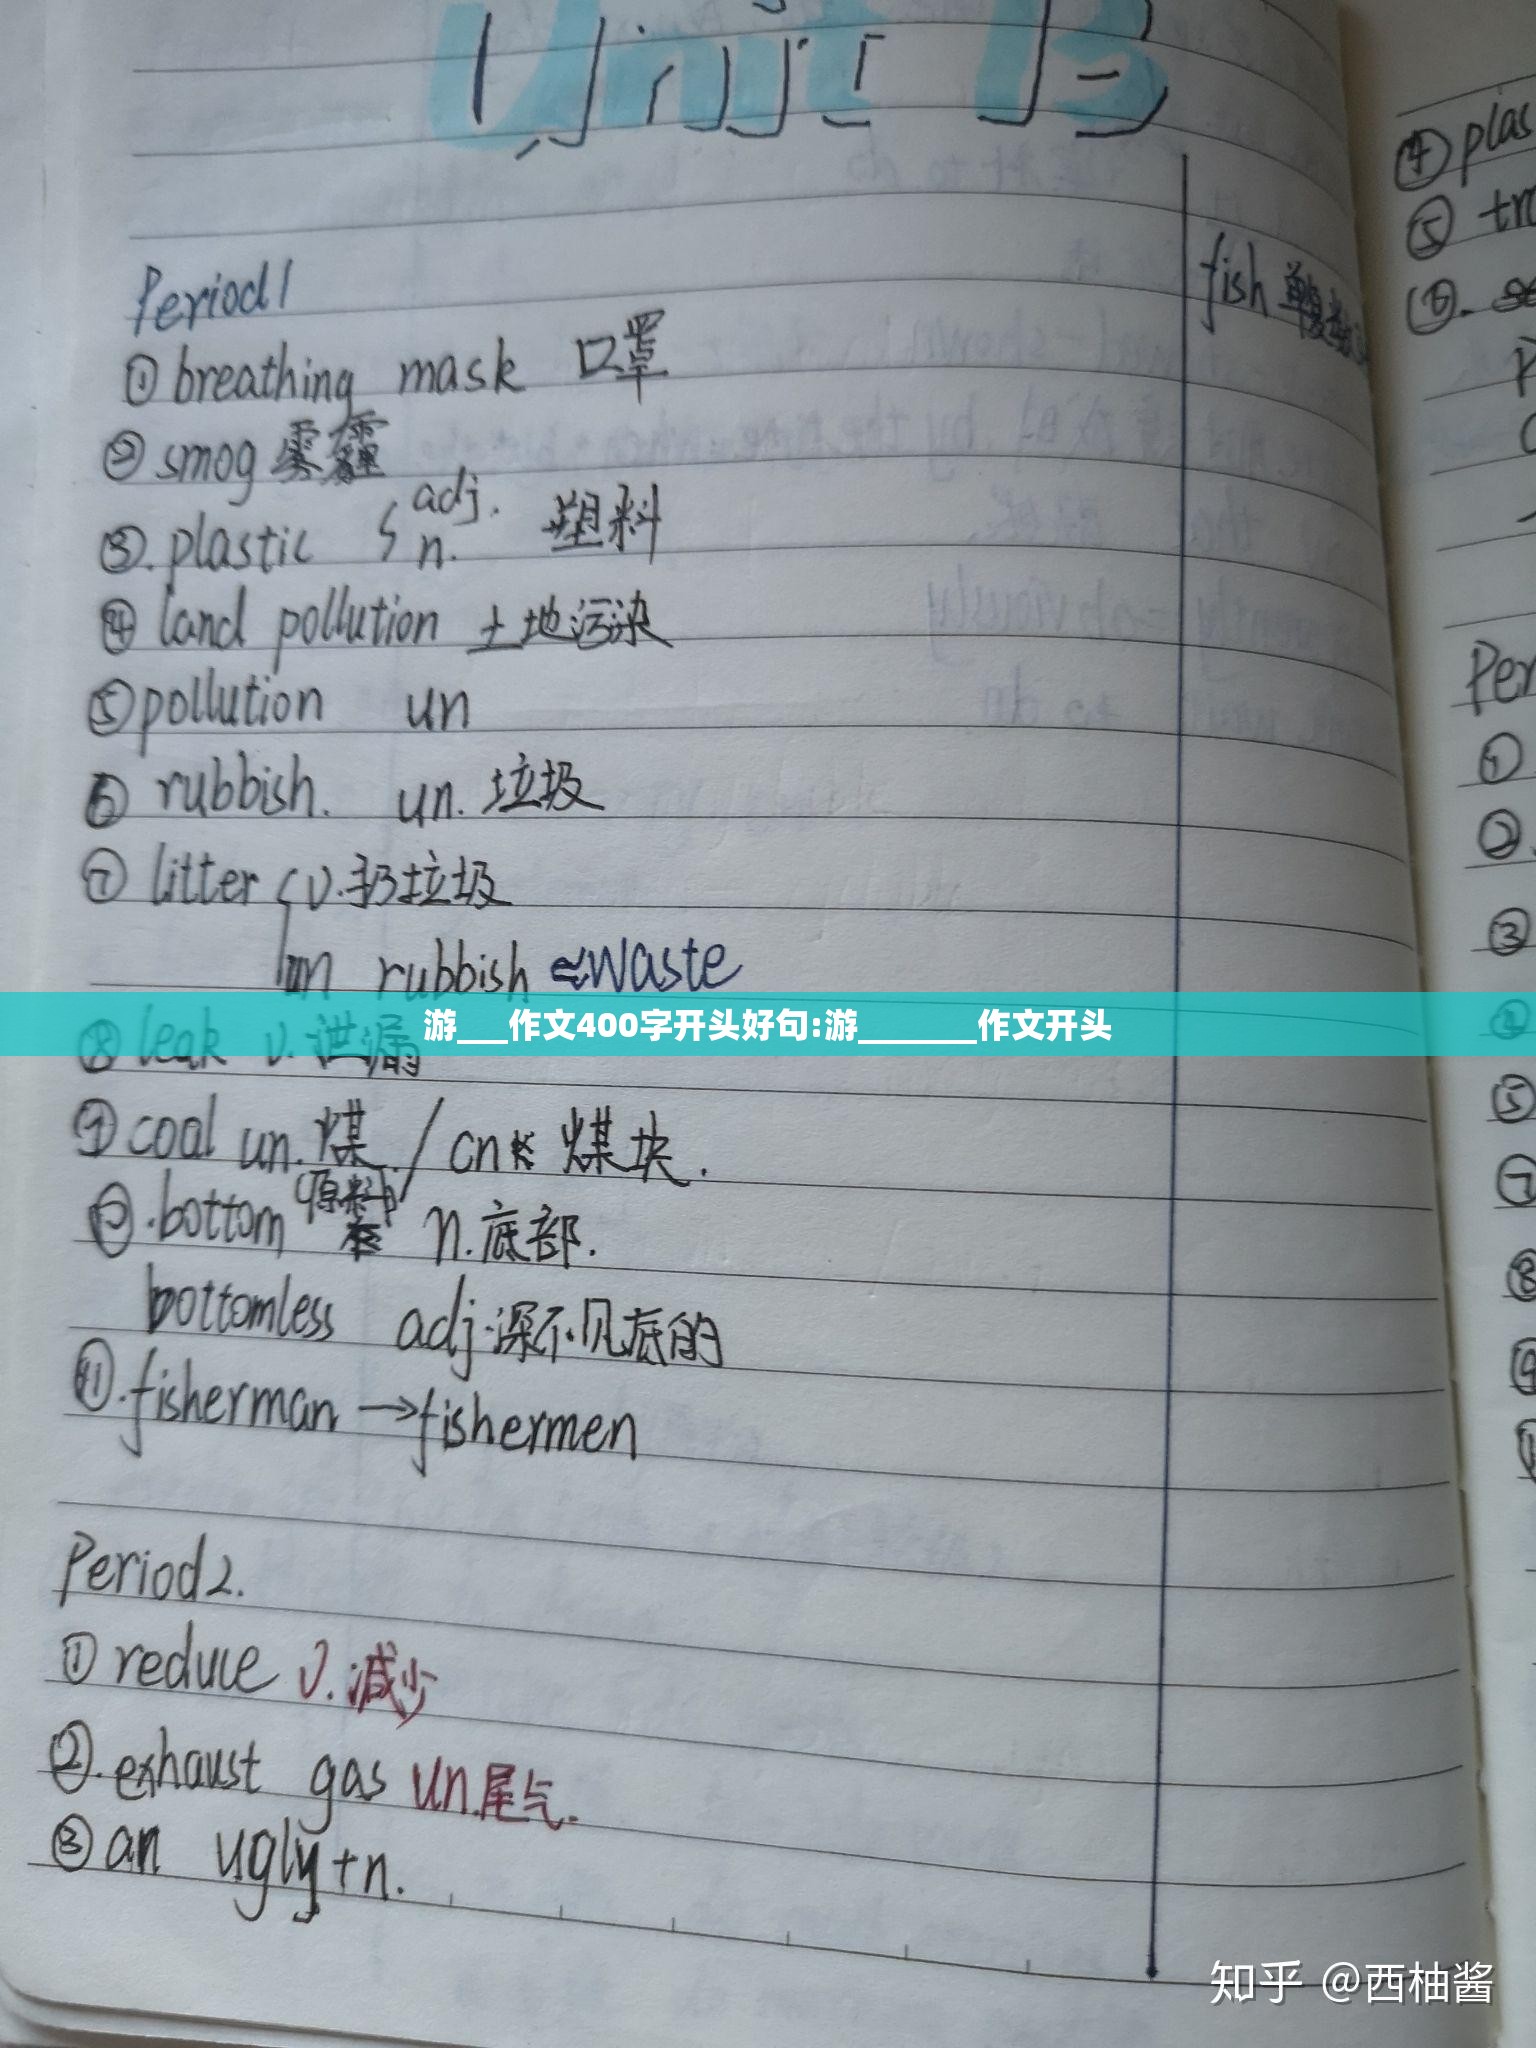 Unit 13
Period1
①breathing mask 口罩
②smog雾霾
adj.
③.plastic { n. 塑料
④land pollution 土地污染
⑤pollution un
⑥rubbish. un.垃圾
⑦litter { v.扔垃圾
un rubbish ≈waste
游___作文400字开头好句:游_______作文开头
⑧leak v.泄漏
⑨coal un.煤 / cn 煤块.
(原料)
⑩.bottom n.底部.
bottomless adj.深不见底的
⑪.fisherman →fishermen
Period2.
①reduce v.减少
②.exhaust gas un.尾气.
③an ugly+n.
fish 单复数
④plas
⑤ tr
⑥.
Per
①
②.
③
④
⑤
⑦
⑧
⑨
知乎 @西柚酱